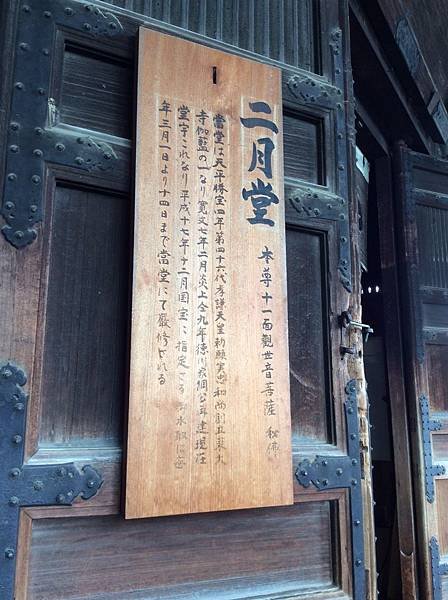 二月堂 本尊十一面觀世音菩薩 秘佛
當堂は天平勝宝四年第四十六代孝謙天皇勅願実忠和尚創立東大
寺伽藍の一なり寛文七年二月炎上仝九年徳川家綱公再建現在
堂宇これなり平成十七年十二月国宝に指定さる お水取は毎
年三月一日より十四日まで當堂にて嚴修される